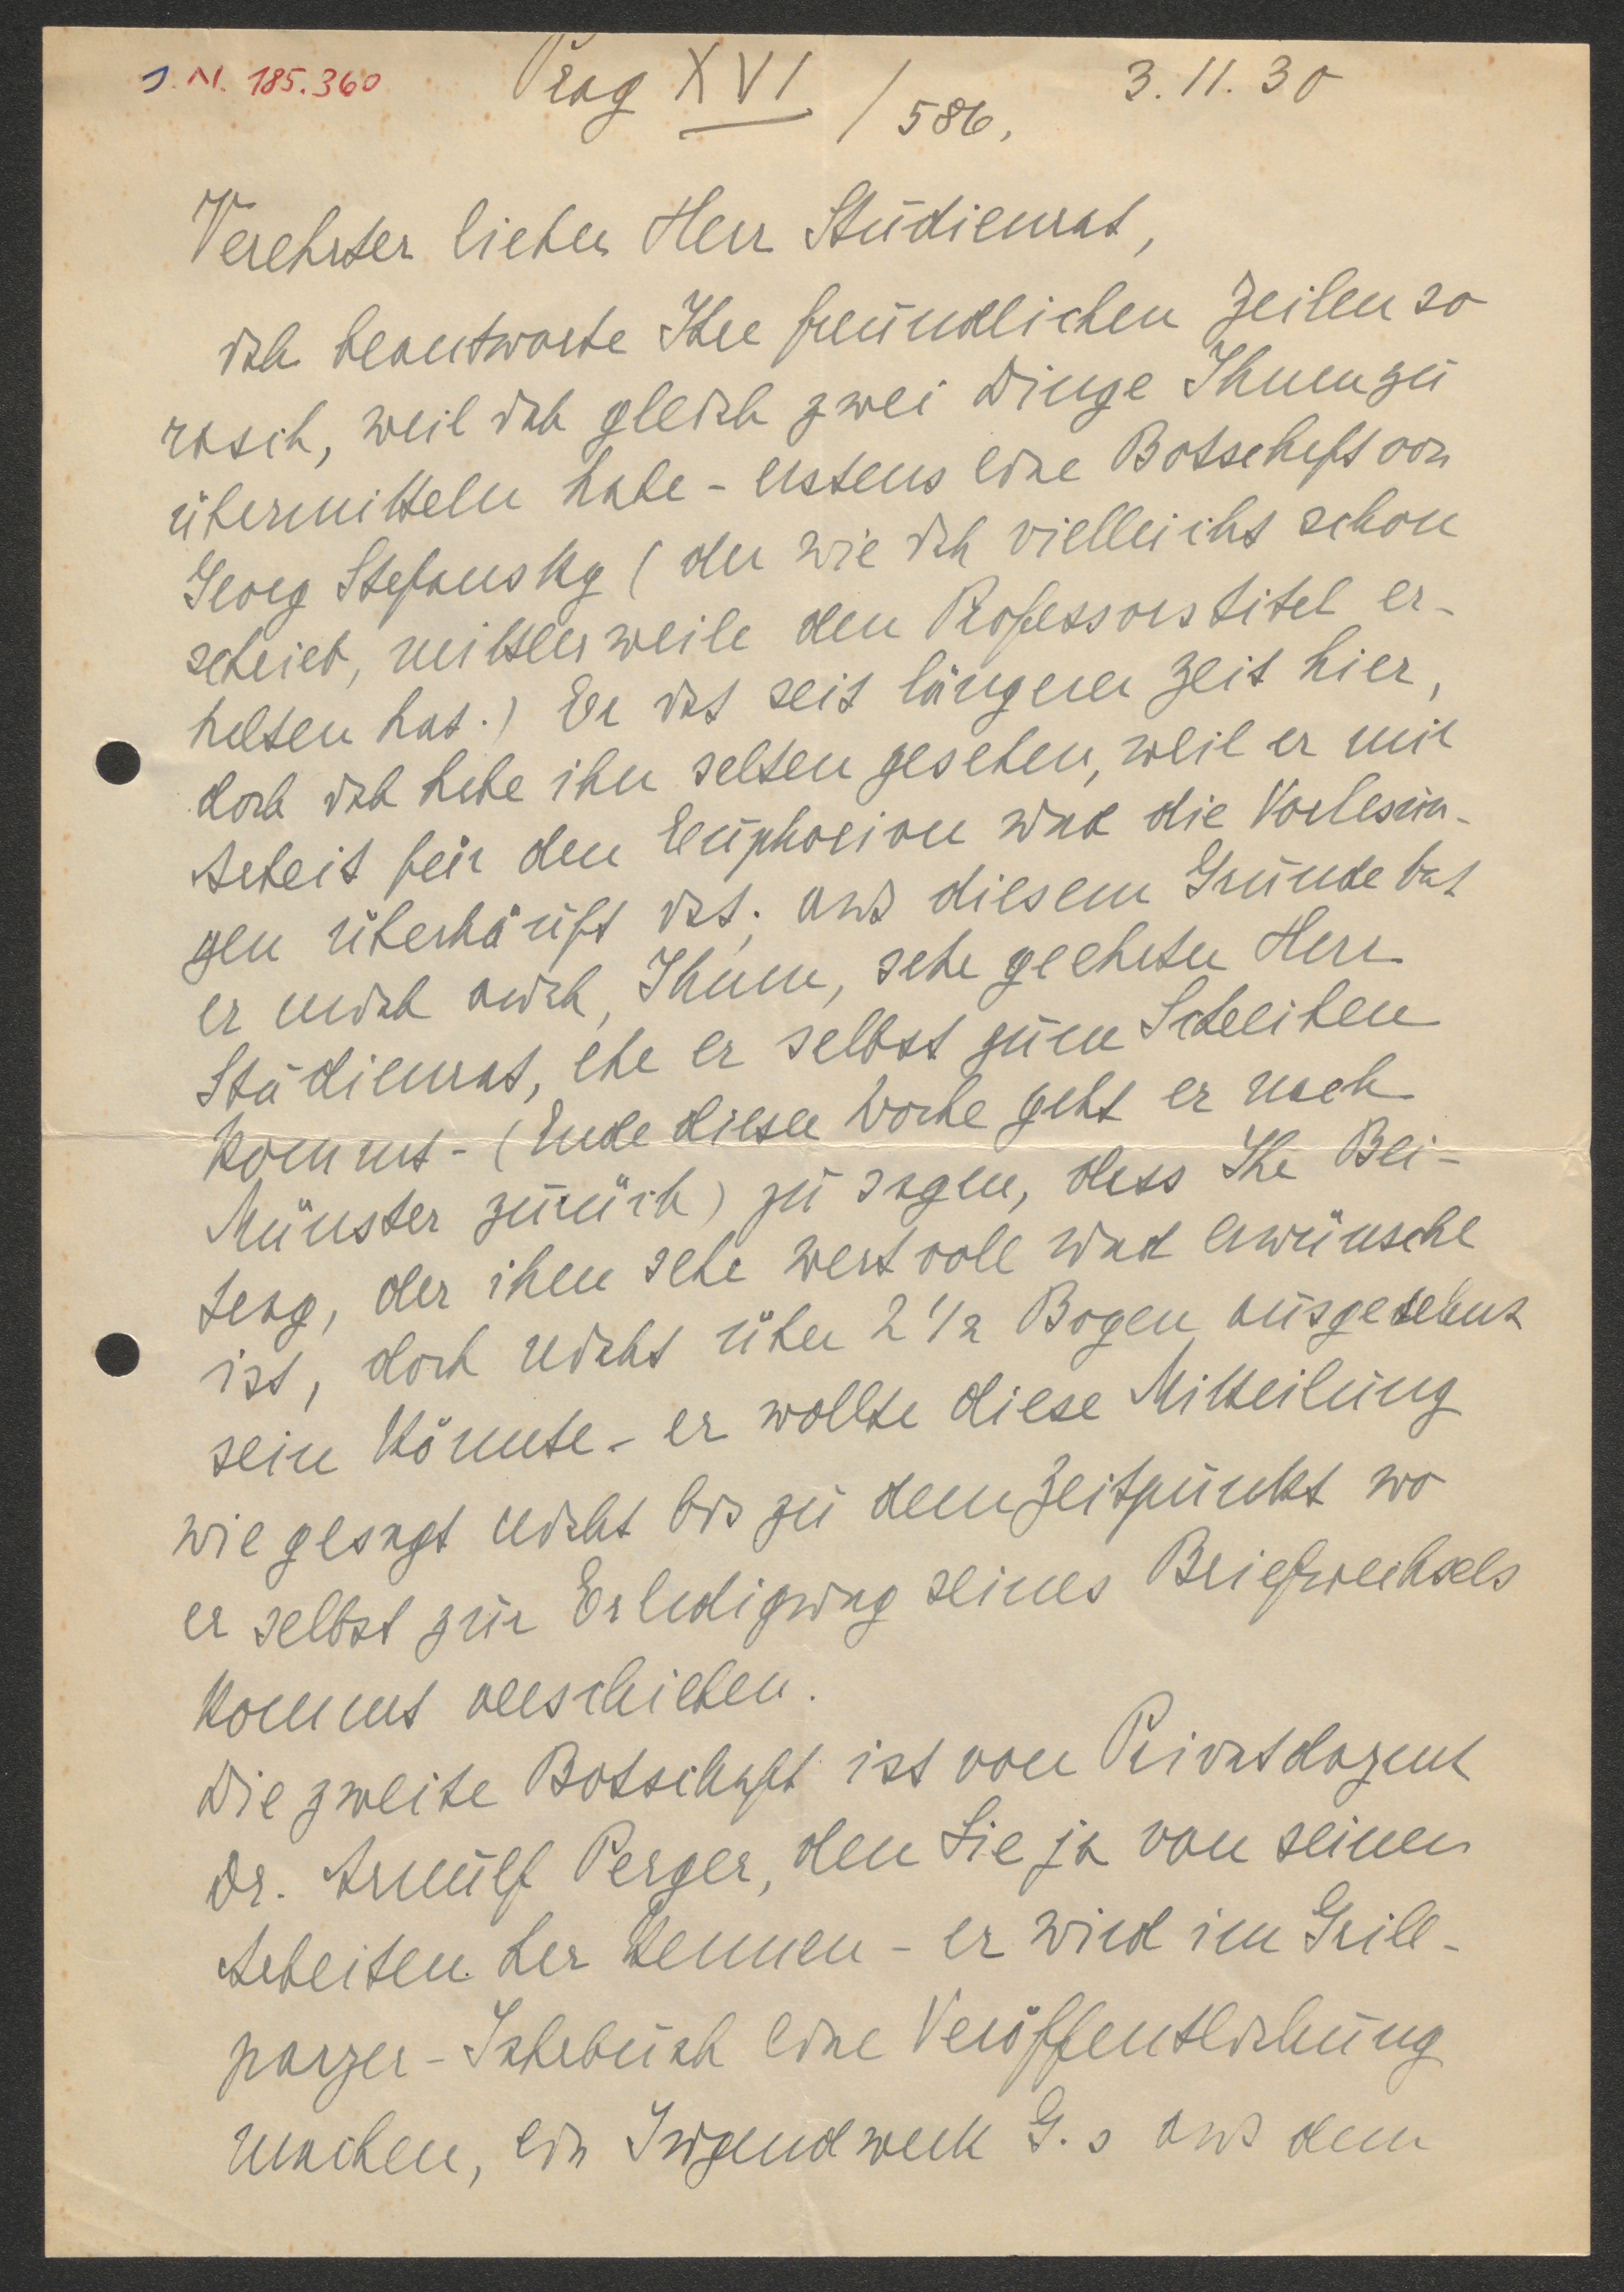 J.N. 185.360
Prag XVI / 586,
3.11.30
Verehrter lieber Herr Studienrat,
ich beantworte Ihre freundlichen Zeilen so
rasch, weil ich gleich zwei Dinge Ihnen zu
übermitteln habe - erstens eine Botschaft von
Georg Stefansky (der wie ich vielleicht schon
schrieb, mittlerweile den Professorstitel er-
halten hat.) Er ist seit längerer Zeit hier,
doch ich habe ihn selten gesehen, weil er mit
Arbeit für den Euphorion und die Vorlesun-
gen überhäuft ist; aus diesem Grunde bat
er mich auch, Ihnen, sehr geehrter Herr
Studienrat, ehe er selbst zum Schreiben
kommt - (Ende dieser Woche geht er nach
Münster zurück) zu sagen, dass Ihr Bei-
trag, der ihm sehr wertvoll und erwünscht
ist, doch nicht über 2 1/2 Bogen ausgedehnt
sein könnte - er wollte diese Mitteilung
wie gesagt nicht bis zu dem Zeitpunkt wo
er selbst zur Erledigung seines Briefwechsels
kommt verschieben.
Die zweite Botschaft ist von Privatdozent
Dr. Arnulf Perger, den Sie ja von seinen
Arbeiten her kennen - er wird im Grill-
parzer-Jahrbuch eine Veröffentlichung
machen, ein Jugendwerk G.s aus dem